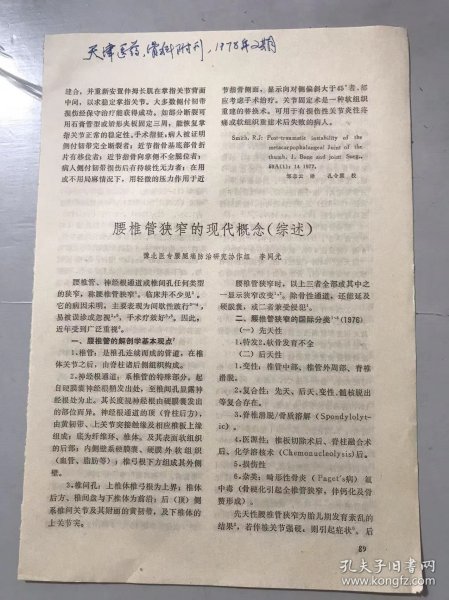 天津医药,骨科附刊,1978年2期
缝合,并重新安置伸拇长肌在掌指关节背面
中间,以求稳定掌指关节。大多数侧付韧带
损伤经保守治疗能获得成功。如部分断裂可
用石膏管型或矫形夹板固定三周,能恢复掌
指关节正常的稳定性。手术指征:病人被证明
侧付韧带完全断裂者;近节指骨基底部骨折
片有移位者;近节指骨向掌侧不全脱位者;
病人侧付韧带损伤后有持续性无力者;在用
或不用局麻情况下,用轻微的压力作用于近
节指骨侧面,显示向对侧偏斜大于45°者,都
应考虑手术治疗。关节固定术是一种软组织
重建的替换术。可用于有损伤性关节炎性疼
痛或软组织重建术后失败的病人。
Smith, R.J: Post-traumatic instability of the
metacarpophalangeal Joint of the
thumb, J. Bone and joint Surg.,
59A(1): 14 1977.
邹志云 译 孔令震 校
腰椎管狭窄的现代概念(综述)
豫北医专腰腿痛防治研究协作组 李同光
腰椎管、神经根通道或椎间孔任何类型
的狭窄,称腰椎管狭窄。临床并不少见。
它的病因未明,主要表现为间歇性跛行,
易被误诊或忽视,手术疗效好,因此,
近年受到广泛重视。
一、腰椎管的解剖学基本观点
1.椎管:是椎孔连续而成的管道,在椎
体关节之后,由脊柱诸后侧组织构成。
2.神经根通道:系椎管的特殊部分,起
自硬膜囊神经根鞘发出处,至椎间孔显露神
经根处为止。其长度视神经根由硬膜囊发出
的部位而异。神经根通道的顶(脊柱后方),
由黄韧带、上关节突接触缘及相应椎板上缘
组成;底为纤维环、椎体,及其表面软组织
的后部;内侧壁系硬膜囊、硬膜外软组织
(血管、脂肪等);椎弓根下方组成其外侧
壁。
3.椎间孔:上椎体椎弓根为上界;椎体
后方、椎间盘与下椎体为前沿;后(顶)侧
系椎间关节及其附丽的黄韧带,及下椎体的
上关节突。
腰椎管狭窄时,以上三者全部或其中之
一显示狭窄改变,除骨性通道,还能延及
硬膜囊,或二者兼受侵犯。
二、腰椎管狭窄的国际分类(1976)
(一)先天性
1.特发2.软骨发育不全
(二)后天性
1.变性:椎管中部、椎管外周部、脊椎
滑脱。
2.复合性:先天、后天、变性、髓核脱出
等复合存在。
3.脊椎滑脱/骨质溶解(Spondylolyt-
ic)。
4.医源性:椎板切除术后、脊柱融合术
后、化学溶核术(Chemonucleolysis)后。
5.损伤性
6.杂类:畸形性骨炎(Paget's病)氟
中毒(骨硬化引起全椎管狭窄,伴钙化及骨
赘形成)。
先天性腰椎管狭窄为胎儿期发育紊乱的
结果,若伴椎关节强硬,则引起症状。后
89
孔夫子旧书网
kongfz.com